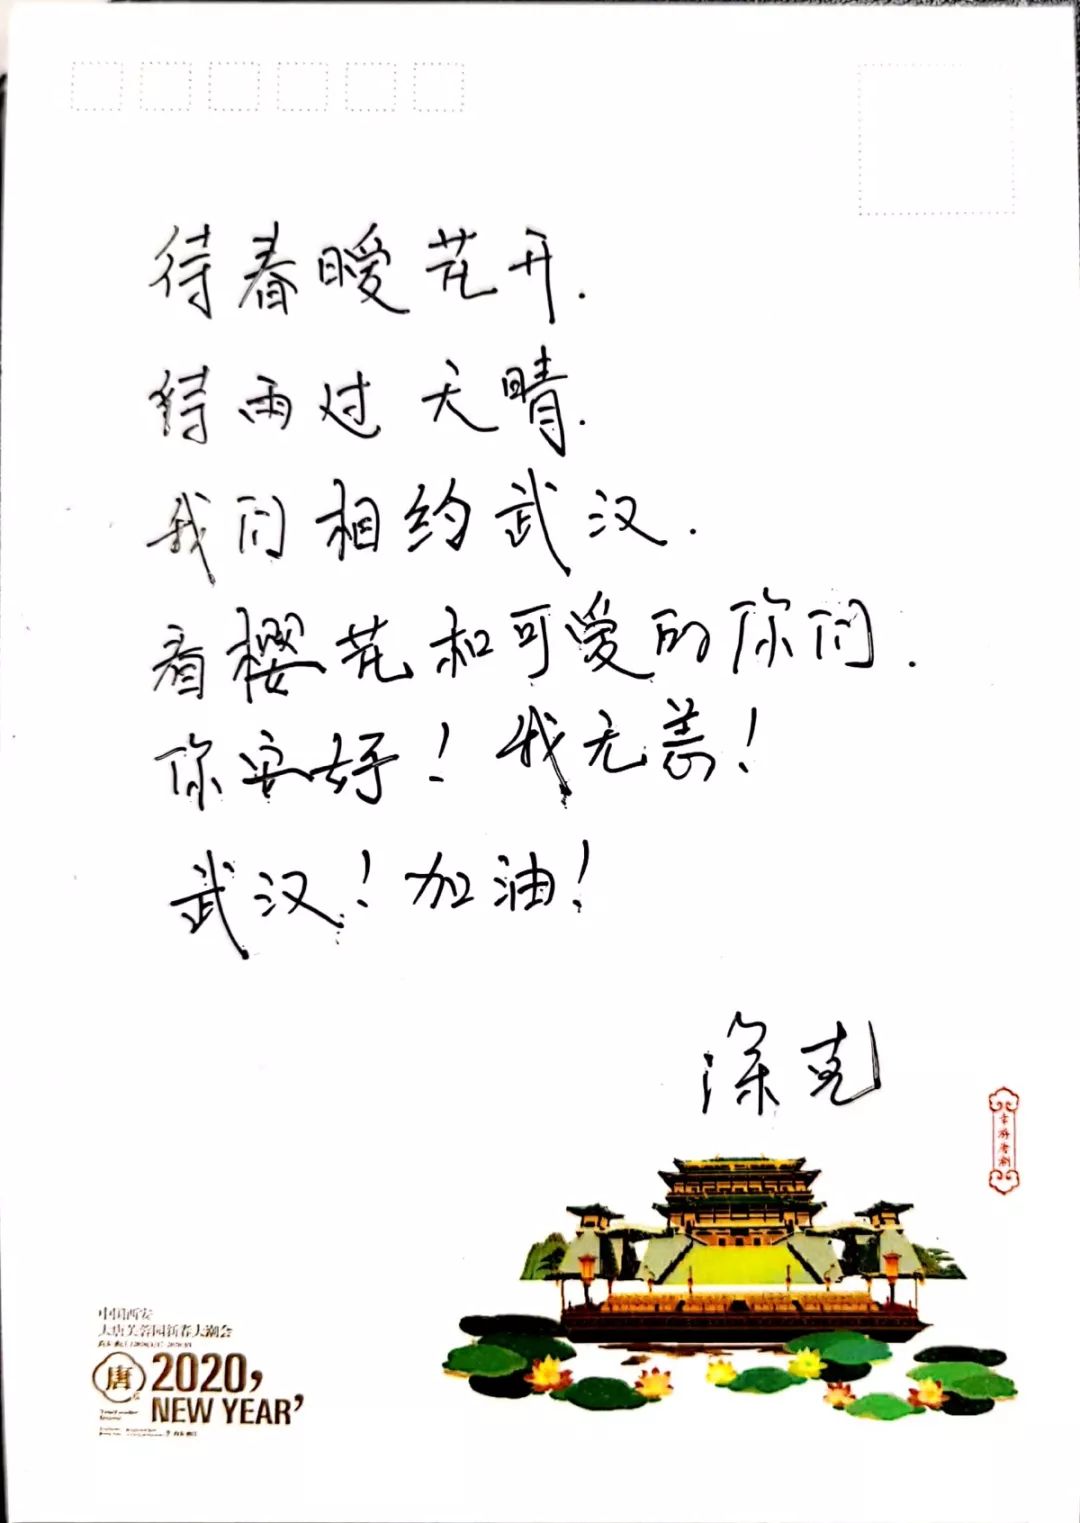 待春暖花开.
待雨过天晴.
我们相约武汉.
看樱花和可爱的你们.
你安好!我无恙!
武汉!加油!
幸游唐潮
中国西安
大唐芙蓉园新春大潮会
唐
2020,
NEW YEAR'